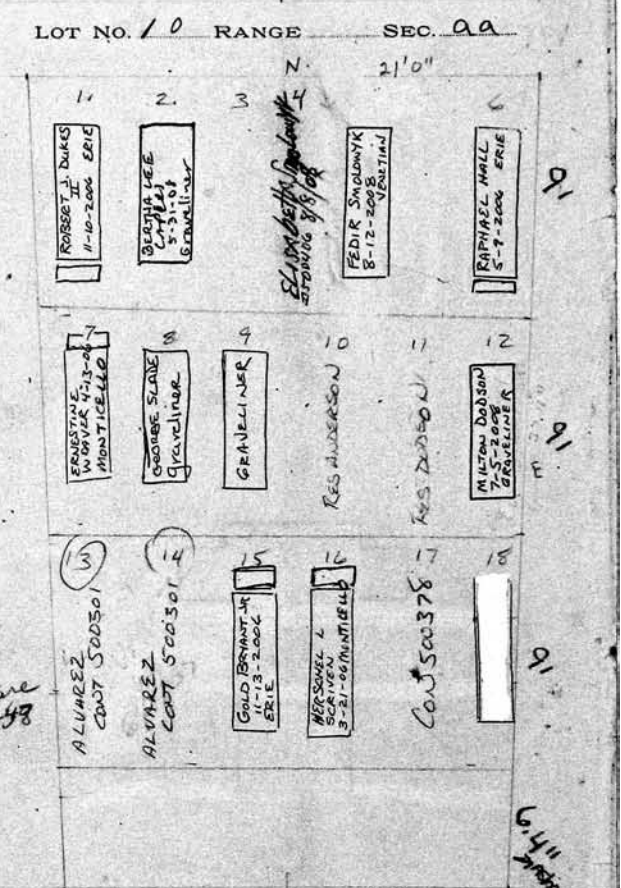 LOT NO. 10 RANGE SEC. aa
N. 21'0"
1.
ROBERT J. DUKES
II
11-10-2006 ERIE
2.
BERTHA LEE
CAPLES
5-31-08
Graveliner
3
4
ELISABETH Smolowyk
8/8/08
FEDIR SMOLOWYK
8-12-2008
VENETIAN
6
RAPHAEL HALL
5-9-2006 ERIE
9'
7
ERNESTINE
WEAVER 4-13-06
MONTICELLO
8
GEORGE SLADE
graveliner
9
GRAVELINER
10
RES ANDERSON
11
RES DODSON
12
MILTON DODSON
7-5-2008
GRAVELINER
E
9'
13
ALVAREZ
CONT 500301
14
ALVAREZ
CONT 500301
15
GOLD BRYANT JR
11-13-2006
ERIE
16
HERSCHEL L
SCRIVEN
3-21-06 MONTICELLO
17
CON 500378
18
9'
6'4"